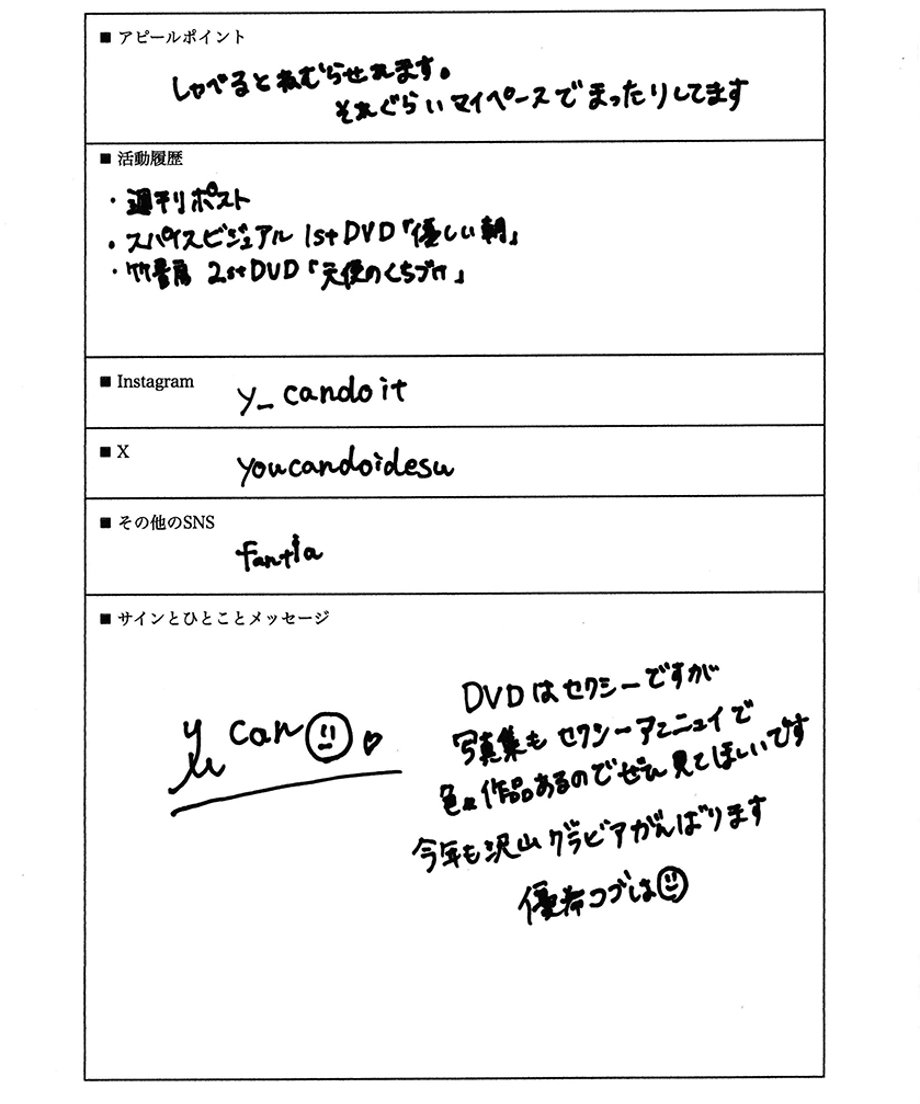 ■ アピールポイント
しゃべるとねむらせれます。
それぐらいマイペースでまったりしてます
■ 活動履歴
・週刊ポスト
・スパイスビジュアル 1stDVD「優しい朝」
・竹書房 2stDVD「天使のくちづけ」
■ Instagram
y_candoit
■ X
youcandoidesu
■ その他のSNS
fantia
■ サインとひとことメッセージ
DVDはセクシーですが
写真集もセクシーアンニュイで
色々作品あるのでぜひ見てほしいです
今年も沢山グラビアがんばります
優希コブしは
yu can